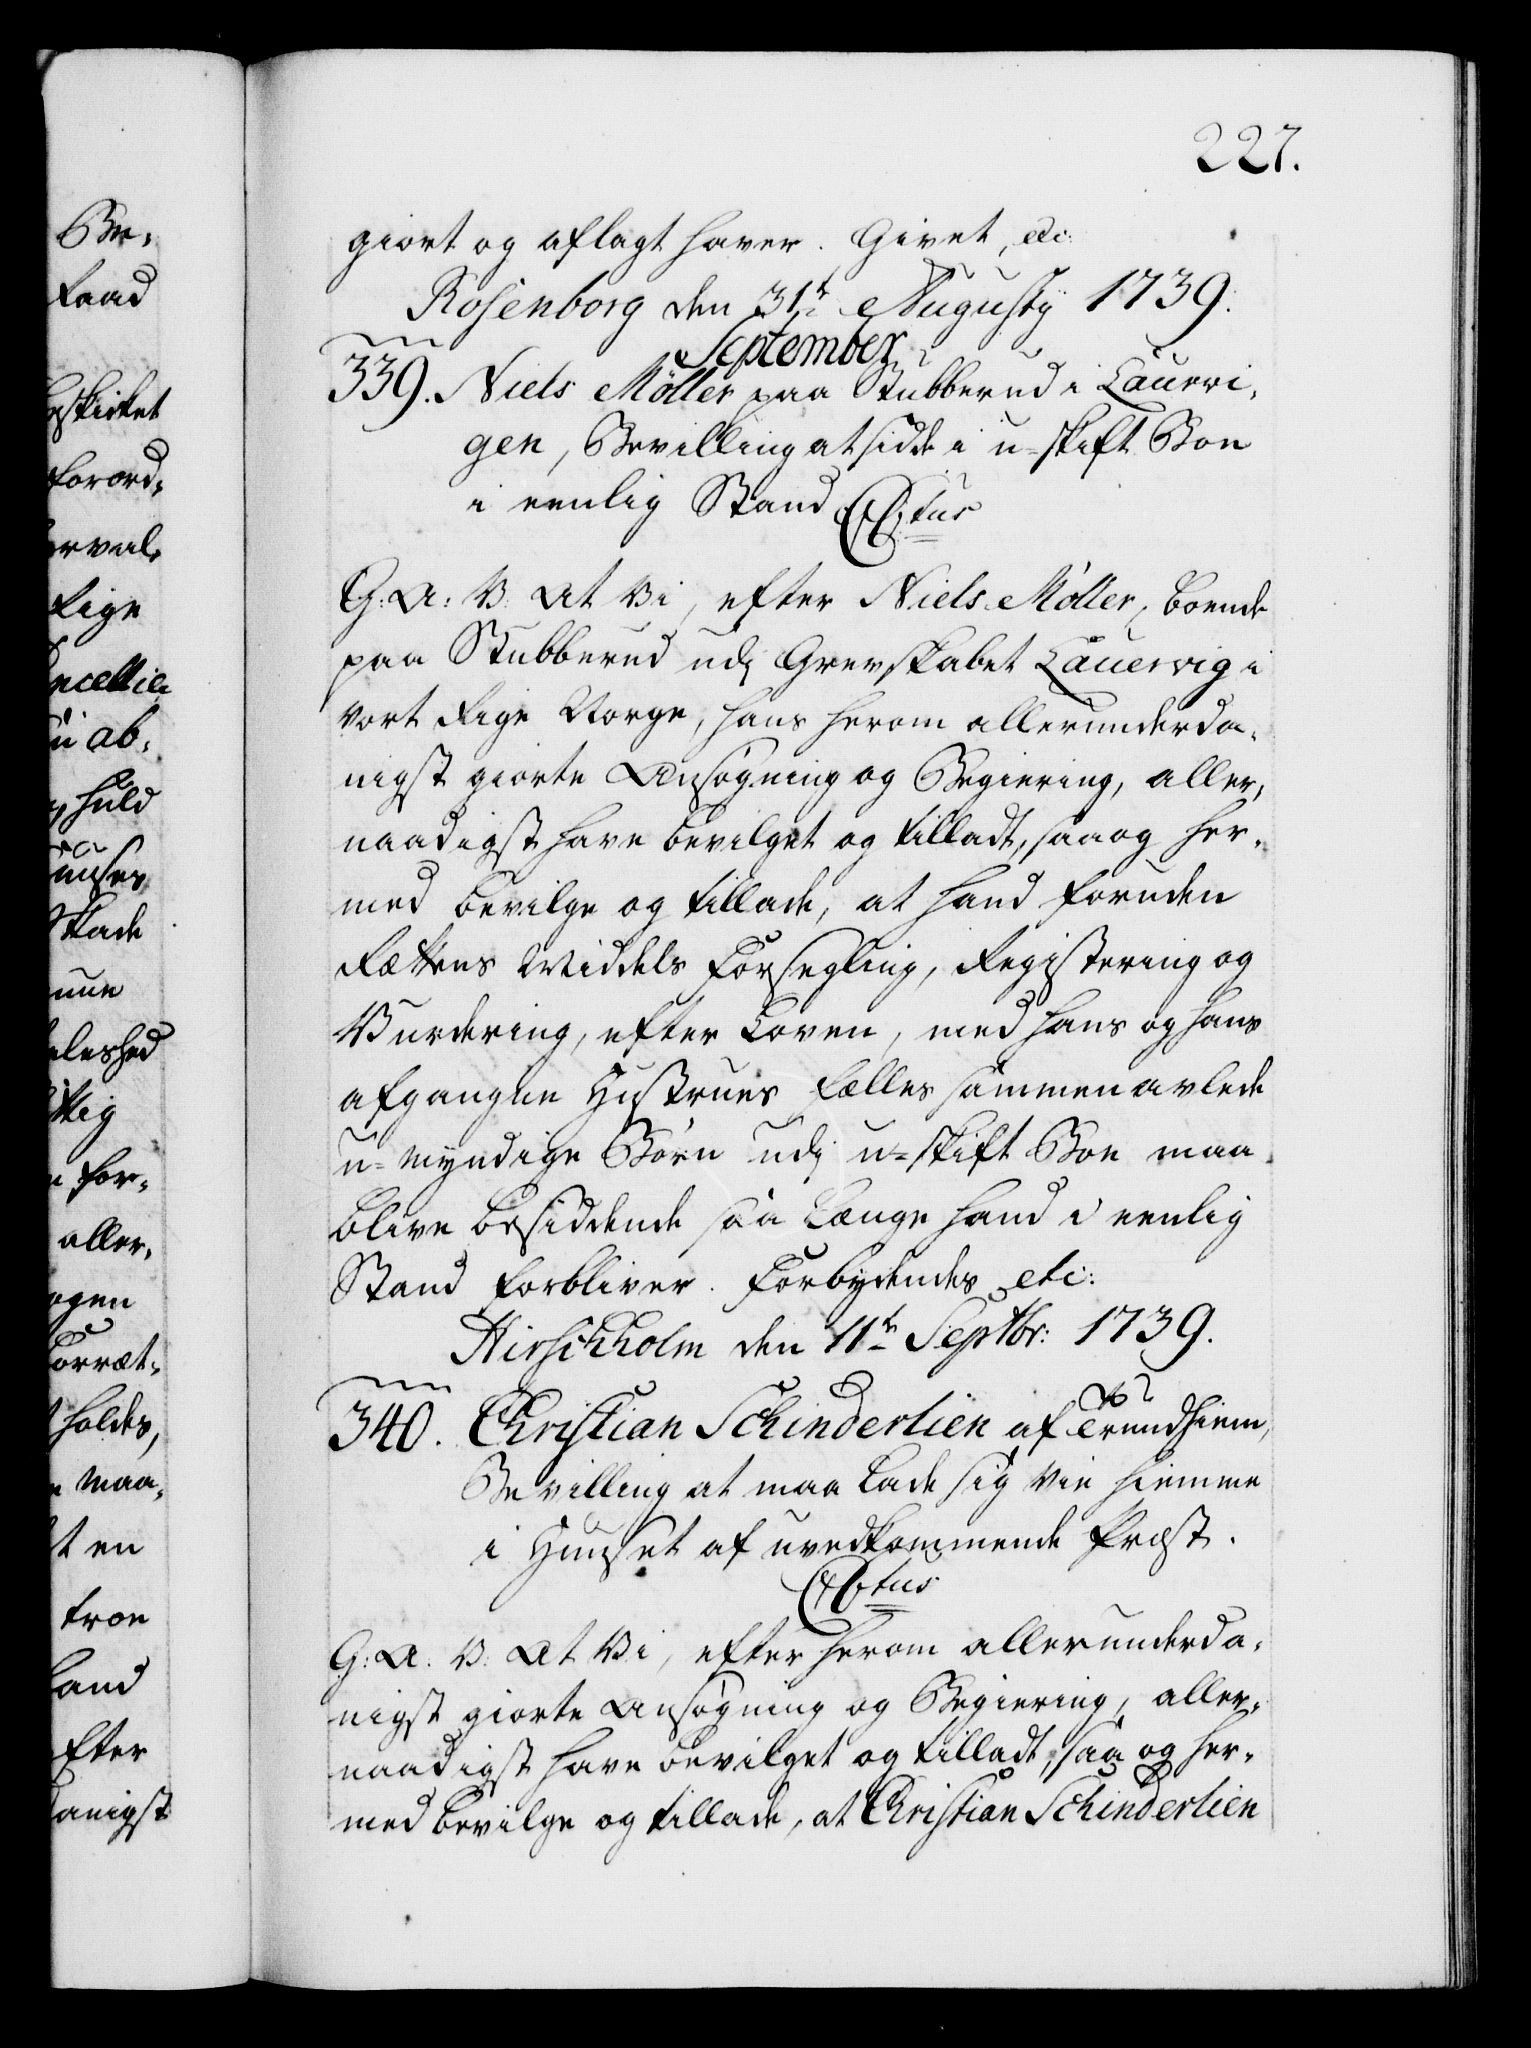 227.
giort og aflagt haver. Givet, etc:
Rosenborg den 31te Augusty 1739.
September
339. Niels Möller paa Stubberud i Lauervi-
gen, Bevilling at sidde i u-skift Boe
i eenlig Stand
G: A: V: At Vi, efter Niels Möller, boende
paa Stubberud udj Grevskabet Lauervig i
vort Rige Norge, hans herom allerunderda-
nigst giorte Ansøgning og Begiering, aller-
naadigst have bevilget og tilladt, saa og her-
med bevilge og tillade, at hand foruden
Rættens Middels Forsegling, Registering og
Vurdering, efter Loven, med hans og hans
afgangne Hustrues fælles sammenavlede
u-myndige Børn udj u-skift Boe maa
blive besiddende saa længe hand i eenlig
Stand forbliver. Forbydendes etc:
Hirschholm den 11te Septbr: 1739.
340. Christian Schinderlien af Trundhiem,
Bevilling at maa lade sig vie hiemme
i Huuset af uvedkommende Præst.
G: A: V: At Vi, efter herom allerunderda-
nigst giorte Ansøgning og Begiering, aller-
naadigst have bevilget og tilladt, saa og her-
med bevilge og tillade, at Christian Schinderlien